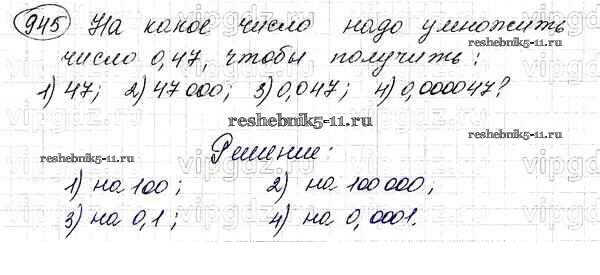 945 На какое число надо умножить
reshebnik5-11.ru
число 0,47, чтобы получить:
1) 47; 2) 47 000; 3) 0,047; 4) 0,000047?
reshebnik5-11.ru
Решение:
reshebnik5-11.ru
reshebnik5-11.ru
1) на 100; 2) на 100 000;
3) на 0,1; 4) на 0,0001.